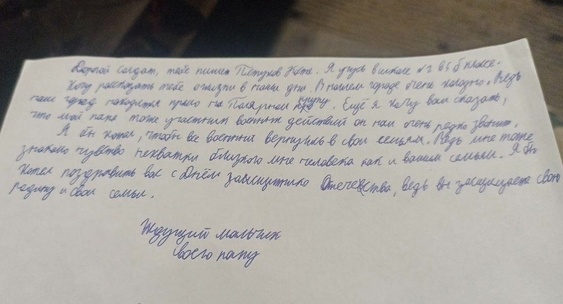 Дорогой солдат, тебе пишет Петухов Я учусь в школе №1 в 5 б классе.
Хочу рассказать тебе о жизни в наши дни. В нашем городе очень холодно. Ведь
наш город находится прямо на Полярном кругу. Ещё я хочу вам сказать,
что мой папа тоже участник военных действий он нам очень редко звонит.
Я бы хотел, чтобы все военные вернулись в свои семьи. Ведь мне тоже
знакомо чувство нехватки близкого мне человека как и вашим семьям. Я бы
хотел поздравить вас с Днём защитника Отечества, ведь вы защищаете свою
родину и свои семьи.
Ждущий мальчик
своего папу